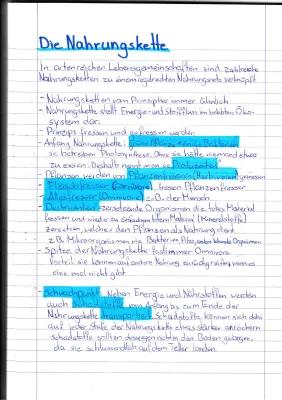 Die Nahrungskette
In artenreichen Lebensgemeinschaften sind zahlreiche
Nahrungsketten zu einem Nahrungsnetz verknüpft
- Nahrungsketten vom Prinzip her immer ähnlich
- Nahrungskette stellt Energie- und Stofffluss im belebten Öko-
system dar.
- Prinzip: fressen und gefressen werden
- Anfang Nahrungskette: grüne Pflanze + einige Bakterien
sie betreiben Photosynthese. Ohne sie hätte niemand etwas
zu essen. Deshalb nennt man sie Produzenten
- Pflanzen werden von Pflanzenfressern (Herbivoren) gefressen
- Fleischfresser (Carnivore), fressen Pflanzenfresser
- Allesfresser (Omnivore) z.B. der Mensch
- Destruenten: zersetzende Organismen die totes Material
fressen und wieder zu Material (Mineralstoffe)
zersetzen, welches den Pflanzen als Nahrung dient
z.B. Mikroorganismen wie Bakterien, Pilze, andere lebende Organismen
- Spitze der Nahrungskette fast immer Omnivore
Vorteil: sie können auf andere Nahrung zurückgreifen wenn es
eine mal nicht gibt
- Schwachpunkt: Neben Energie und Nährstoffen werden
auch Schadstoffe vom Anfang bis zum Ende der
Nahrungskette transportiert. Schadstoffe können sich dabei
auf jeder Stufe der Nahrungskette etwas stärker anreichern
Schadstoffe sollten deswegen nicht in den Boden gelangen,
da sie schlussendlich auf dem Teller landen.